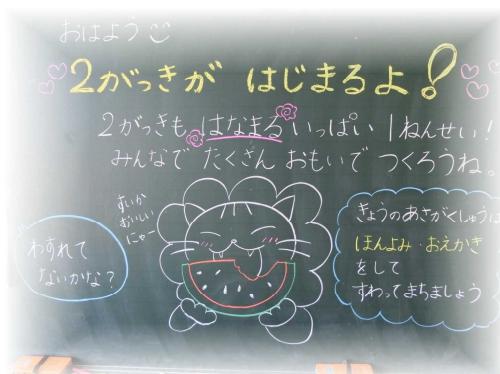 おはよう
2がっきが はじまるよ!
2がっきも はなまる いっぱい 1ねんせい!
みんなで たくさん おもいで つくろうね。
すいか
おいしい
にゃー
わすれて
ないかな?
きょうのあさがくしゅうは
ほんよみ・おえかき
をして
すわってまちましょう